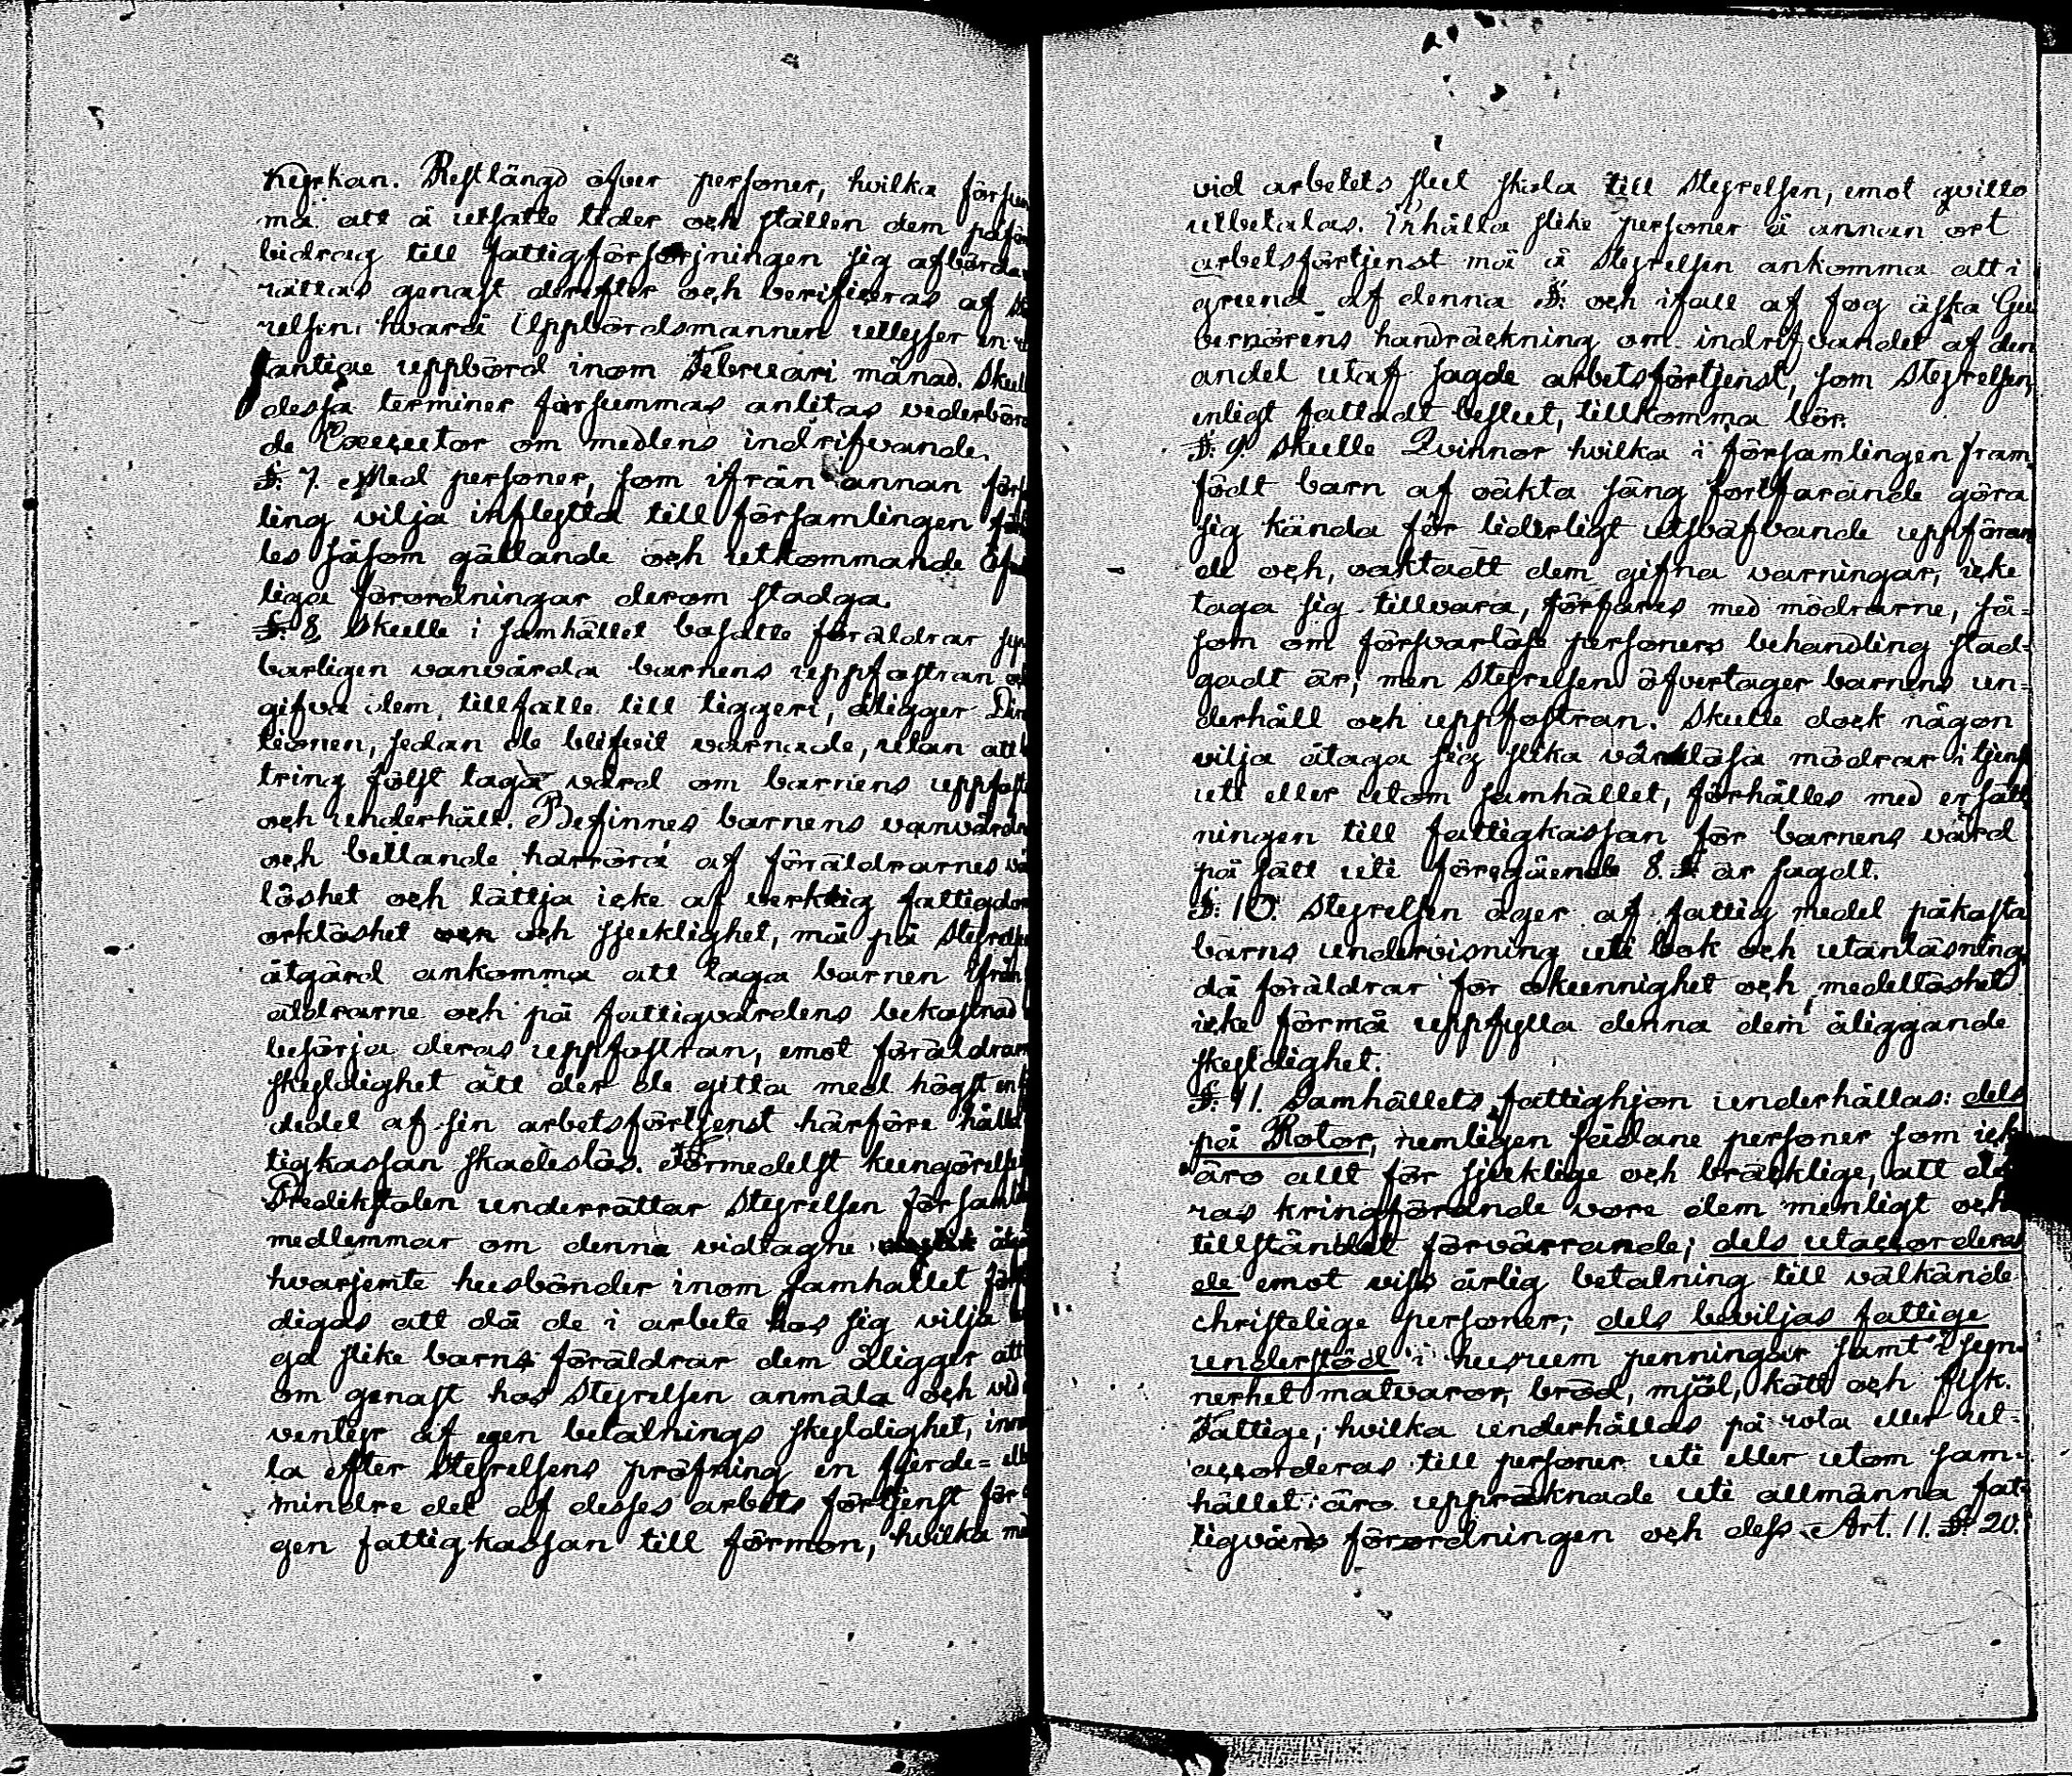 Kyrkan. Restlängd öfver personer, hvilka försum
ma att å utsatte tider och ställen dem påför
bidrag till fattigförsörjningen sig afbörda,
rättas genast derefter och verificeras af St
relsen, hvarå Uppbördsmannen utlyser en
tantige uppbörd inom Februari månad. Skul
dessa terminer försummas anlitas vederböran
de Executor om medlens indrifvande.
§. 7. Med personer, som ifrån annan förs
ling vilja inflytta till församlingen för
les såsom gällande och utkommande Öf
liga förordningar derom stadga.
§. 8. Skulle i samhället bosatte föräldrar
barligen vanvårda barnens uppfostran
gifva dem tillfälle till tiggeri, åligger Dire
tionen, sedan de blifvit varnade, utan att
tring följt taga vård om barnens uppfost
och underhåll. Befinnes barnens vanvårdn
och bettlande härröra af föräldrarnes vå
löshet och lättja icke af verklig fattigdom
orklöshet och sjuklighet, må på Styrelse
åtgärd ankomma att taga barnen ifrån
äldrarne och på fattigvårdens bekostnad
besörja deras uppfostran, emot föräldrar
skyldighet att der de gitta med högst en
dedel af sin arbetsförtjenst härföre hålla
tigkassan skadeslös. Förmedelst kungörelse
Predikstolen underrättar Styrelsen församl
medlemmar om denna vidtagne åtg
hvarjemte husbönder inom samhället
digas att då de i arbete hos sig vilja
ga slike barns föräldrar dem åligger att
om genast hos Styrelsen anmäla och vid
ventyr af egen betalnings skyldighet, inne
la efter Styrelsens pröfning en fjerde= ell
mindre del af desses arbets förtjenst för
gen fattigkassan till förmon, hvilka med
vid arbetets slut skola till Styrelsen, emot qvitto
utbetalas. Erhålla slike personer å annan ort
arbetsförtjenst må å Styrelsen ankomma att i
grund af denna §. och ifall af fog äska Gu
vernörens handräckning om indrifvandet af den
andel utaf sagde arbetsförtjenst, som Styrelsen,
enligt fattadt beslut, tillkomma bör.
§. 9. Skulle Qvinnor hvilka i församlingen fram
födt barn af oäkta säng fortfarande göra
sig kända för liderligt utsväfvande uppföran
de och, oaktadt dem gifna varningar, icke
taga sig tillvara, förfares med mödrarne, så=
som om försvarlöse personers behandling stad=
gadt är; men Styrelsen öfvertager barnens un=
derhåll och uppfostran. Skulle dock någon
vilja åtaga sig slika värnlösa mödrar i tjenst
uti eller utom samhället, förhålles med ersätt
ningen till fattigkassan för barnens vård
på sätt uti föregående 8. § är sagdt.
§. 10. Styrelsen äger af fattig medel påkosta
barns undervisning uti bok och utanläsning,
då föräldrar för okunnighet och medellöshet
icke förmå uppfylla denna dem åliggande
skyldighet.
§. 11. Samhällets fattighjon underhållas: dels
på Rotor, nemligen sådane personer som ick
äro allt för sjuklige och bräcklige, att de
ras kringförande vore dem menligt och
tillståndet förvärrande; dels utackordera
de emot viss årlig betalning till välkände
christelige personer; dels beviljas fattige
understöd i husrum penningar samt i syn=
nerhet matvaror, bröd, mjöl, kött och fisk.
Fattige, hvilka underhållas på rota eller ut=
accorderas till personer uti eller utom sam=
hället äro uppräknade uti allmänna fat=
tigvårds förordningen och dess Art. 11. §. 20.